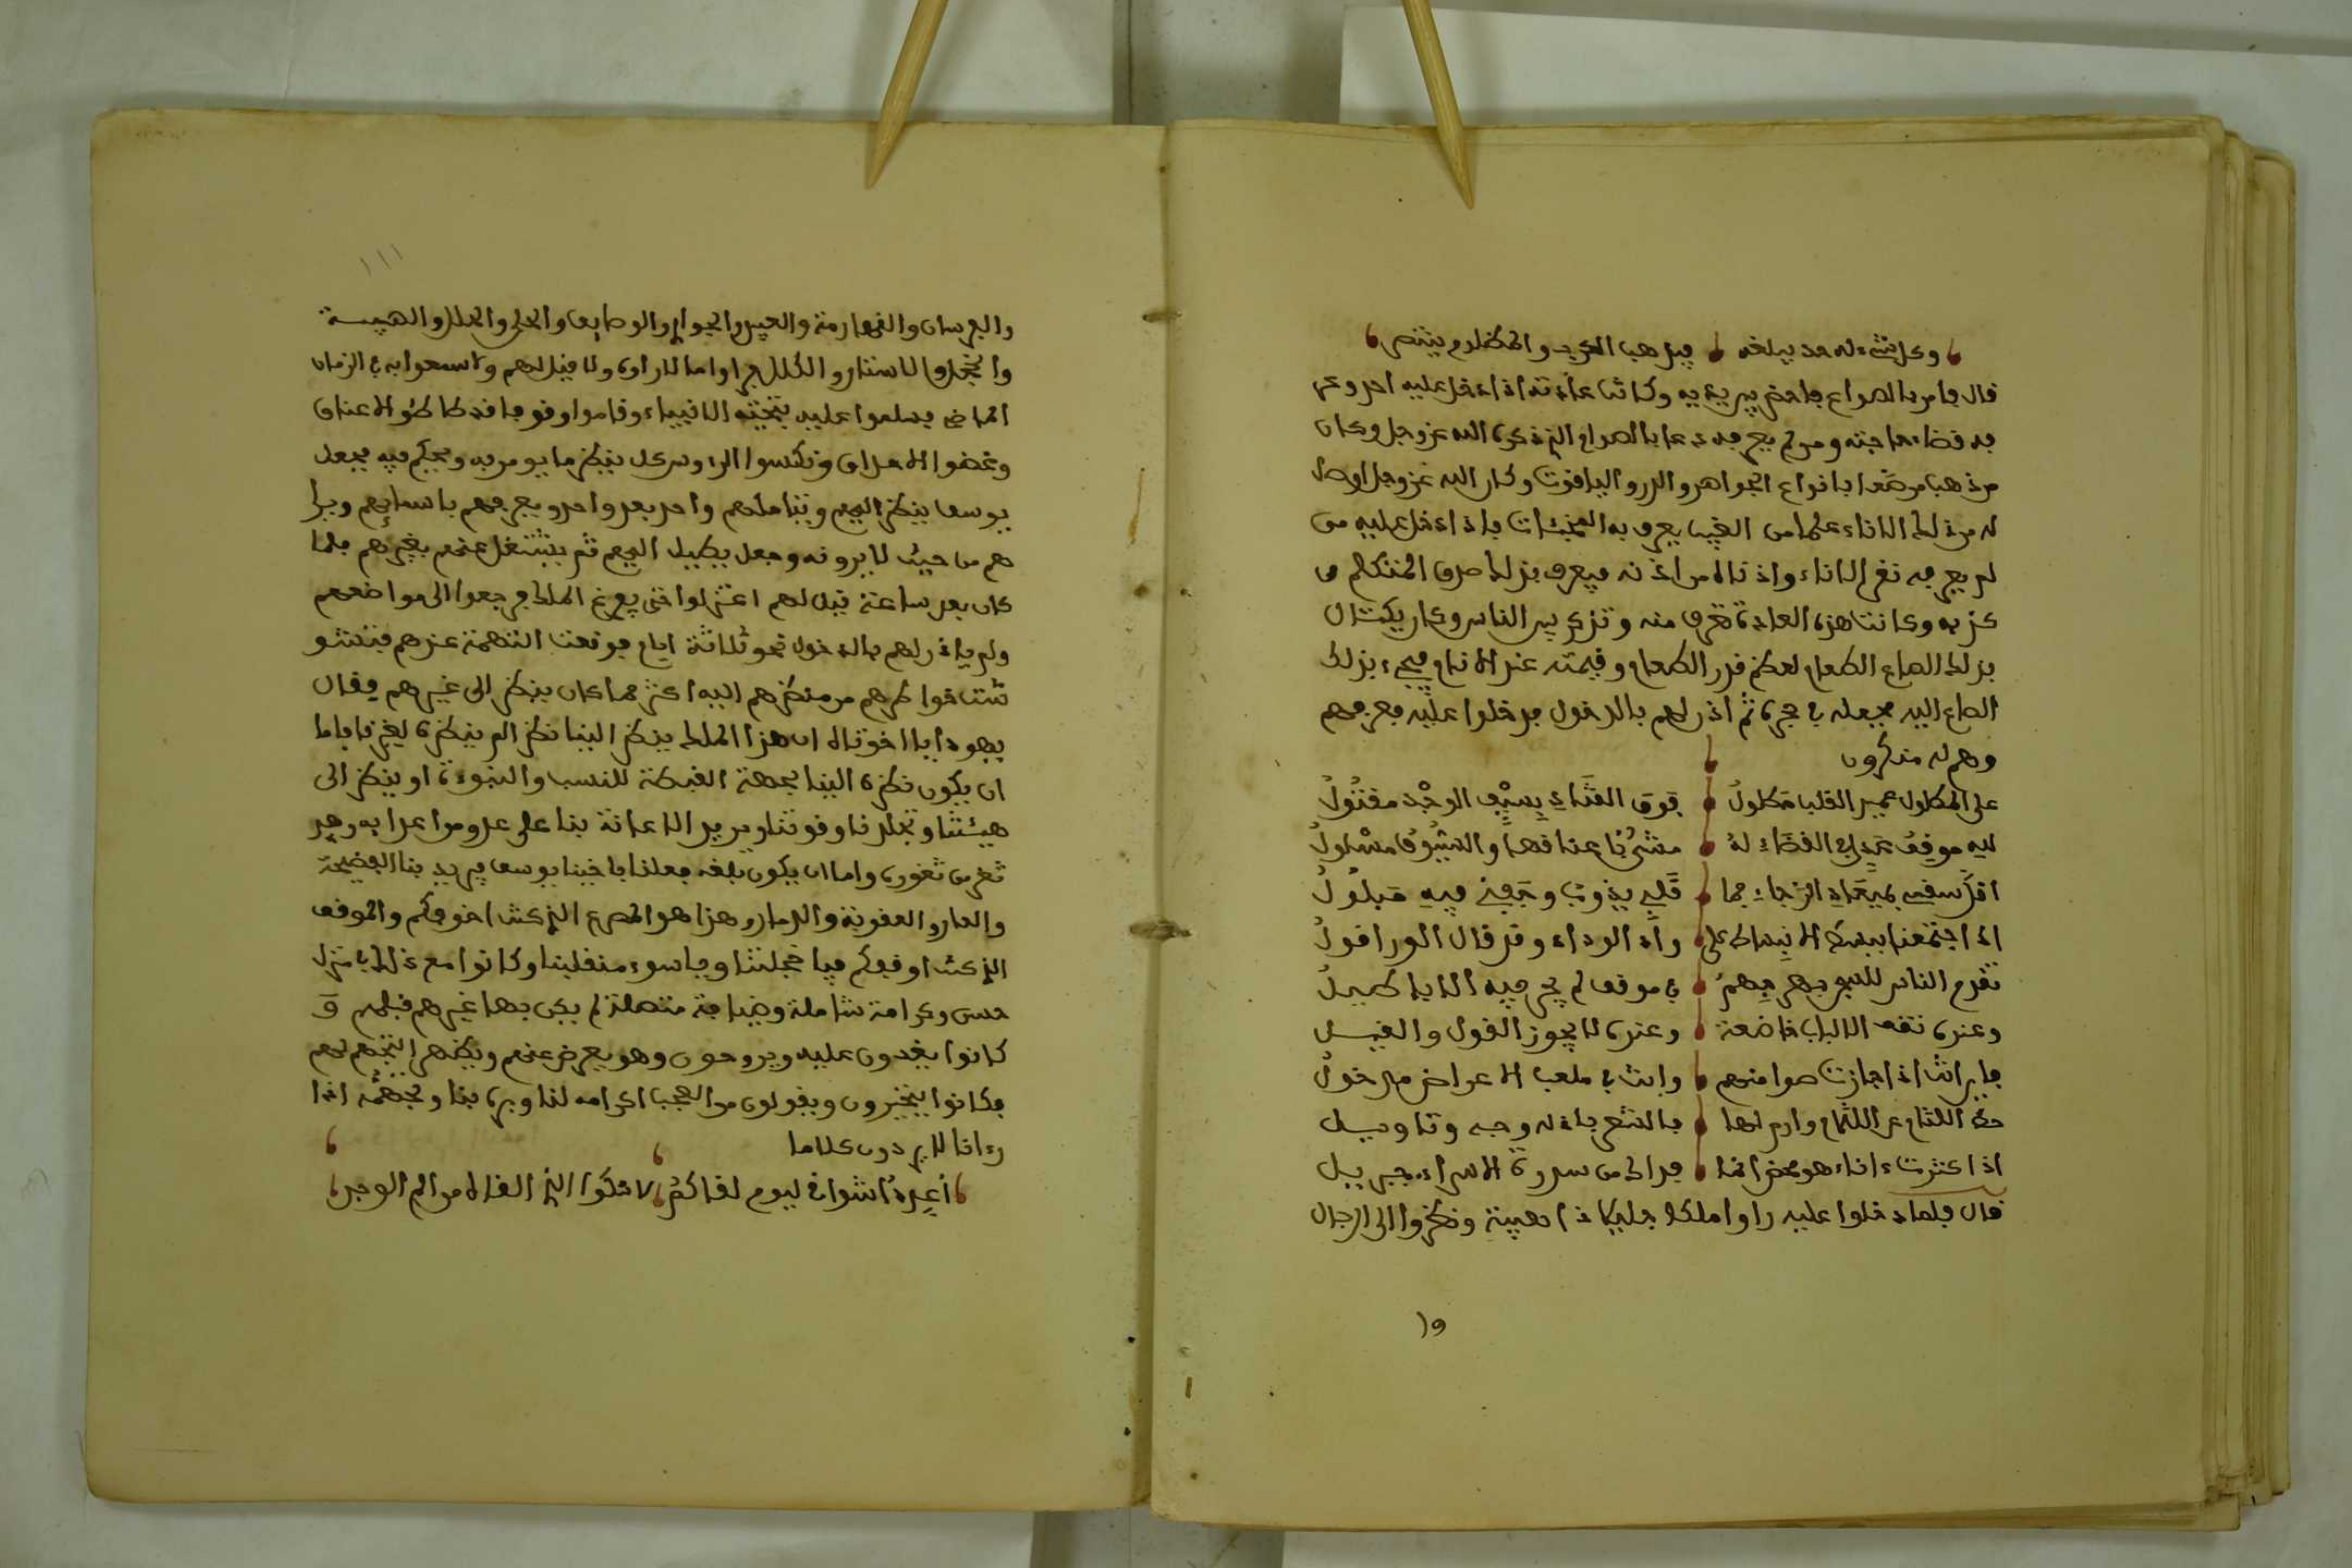 وكل شيء له حد يبلغه فيذهب الكرب والمظلوم ينتصر
قال فامر بالصواع فاحضر بين يديه وكانت عادته اذا دخل عليه احد وعر
فه قضا حاجته ومن لم يعرفه دعا بالصواع الذي ذكره الله عز وجل وكان
من ذهب مرصعا بانواع الجواهر والدر والياقوت وكان الله عز وجل اوصل
له من ذلك الاناء علما من الغيب يعرف به المخبئات فاذا دخل عليه من
لم يعرفه نقر الاناء واذناه من اذنه فيعرف بذلك صدق المتكلم من
كذبه وكانت هذه العادة تعرف منه وتذكر بين الناس وكان يكتال
بذلك الصاع الطعام لعظم قدر الطعام وقيمته عند الانام فجيء بذلك
الصاع اليه فجعله في حجره ثم اذن لهم بالدخول فدخلوا عليه فعرفهم
وهم له منكرون
على المطلول عمير القلب مطلول فوق القتاد بسيف الوجد مقتول
لله موقف عبدان القضاء له مشرئبا عناقها والشوق مسلول
افل سيفي بميعاد الرجاء فما قلبي يذوب وجفني فيه مبلول
اذا اجتمعنا ببسط الانبساط على واد الوداد وقد قال الورا قول
تقدم الناس للنجو بهم بهم في موقف لم يجر فيه الاباطيل
وعنده تقف الالباب خاضعة وعنده لا يجوز القول والقيل
فابرانت اذا جازت صوامنهم وانت في ملعب الاعراض مدخول
حط اللثام عن اللثام وادن لها بالشعر باذله وجه وتاويل
اذا عثرت اناء هو محض انما فداك من سدرة الاسراء جبريل
قال فلما دخلوا عليه راوا ملكا جليلا ذا هيبة ونظروا الى الرجال
١١١
والفرسان والقهارمة والعبيد والجوار والوصايف والحلي والحلل والهيبة
والحجاب والاستار والكلل فراوا ما لا راوه ولا قيل لهم ولا سمعوا به في الزمان
الماضي فسلموا عليه بتحية الانبياء وقاموا وقوفا قد طاطئوا الاعناق
وغضوا الاحداق ونكسوا الرءوس كل ينظر ما يومر به ويحكم فيه فجعل
يوسف ينظر اليهم ويتاملهم واحد بعد واحد ويعرفهم باسمائهم ويرا
هم من حيث لا يرونه وجعل يطيل اليهم ثم يشتغل عنهم بغيرهم فلما
كان بعد ساعة قيل لهم اعتزلوا حتى يفرغ الملك فرجعوا الى مواضعهم
ولم ياذن لهم بالدخول نحو ثلاثة ايام فوقعت التهمة عندهم فتشو
شت خواطرهم من نظرهم اليه اكثر مما كان ينظر الى غيرهم فقال
يهودا يا اخوتاه ان هذا الملك ينظر الينا نظرا لم ينظره لغيرنا فاما
ان يكون نظره الينا بجهة الغبطة للنسب والنبوة او ينظر الى
هيئتنا وتجلدنا وقوتنا ويريد الاعانة بنا على عدو من اعدايه وحد
ثغر من ثغوره واما ان يكون بلغه فعلنا باخينا يوسف فيريد بنا الفضيحة
والعار والعقوبة والدمار وهذا هو المصرع الذي كنت اخوفكم والموقف
الذي كنت اوقفكم فيا خجلتنا وياسوء منقلبنا وكانوا مع ذلك بمنزل
حسن وكرامة شاملة وضيافة متصلة لم يكن بها غيرهم قبلهم و
كانوا يغدون عليه ويروحون وهو يعرض عنهم ويظهر التجهم لهم
فكانوا يتحيرون ويقولون من العجب اكرامه لنا وبره بنا وتجهمه اذا
رءانا لا يردون كلاما
أعدد اشواقي ليوم لقاكم لاشكوا الذي القاه من الم الوجد
١٩